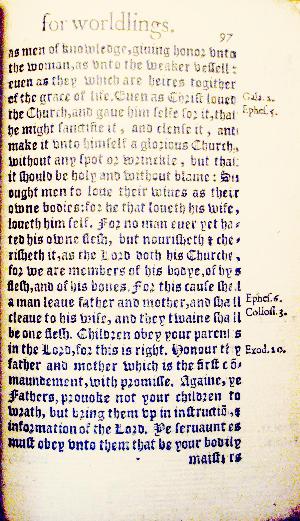 for worldlings.
97
as men of knowledge, giuing honor vnto
the woman, as vnto the weaker vessell:
euen as they which are heires togither
of the grace of life. Euen as Christ loued
Gala. 2.
the Church, and gaue him selfe for it, that
Ephes. 5.
he might sanctifie it, and clense it, and
make it vnto himself a glorious Church,
without any spot or wrinckle, but that
it should be holy and without blame: So
ought men to loue their wiues as their
owne bodies: for he that loueth his wife,
loueth him self. For no man euer yet ha-
ted his owne flesh, but nourisheth & che-
risheth it, as the Lord doth his Churche,
for we are members of his bodye, of hys
flesh, and of his bones. For this cause shall
a man leaue father and mother, and shall
Ephes. 6.
cleaue to his wife, and they twaine shall
Colloss. 3.
be one flesh. Children obey your parents
in the Lord, for this is right. Honour thy
Exod. 20.
father and mother which is the first cō-
maundement, with promisse. Againe, ye
Fathers, prouoke not your children to
wrath, but bring them vp in instructiō, &
information of the Lord. Ye seruauntes
must obey vnto them that be your bodily
maisters